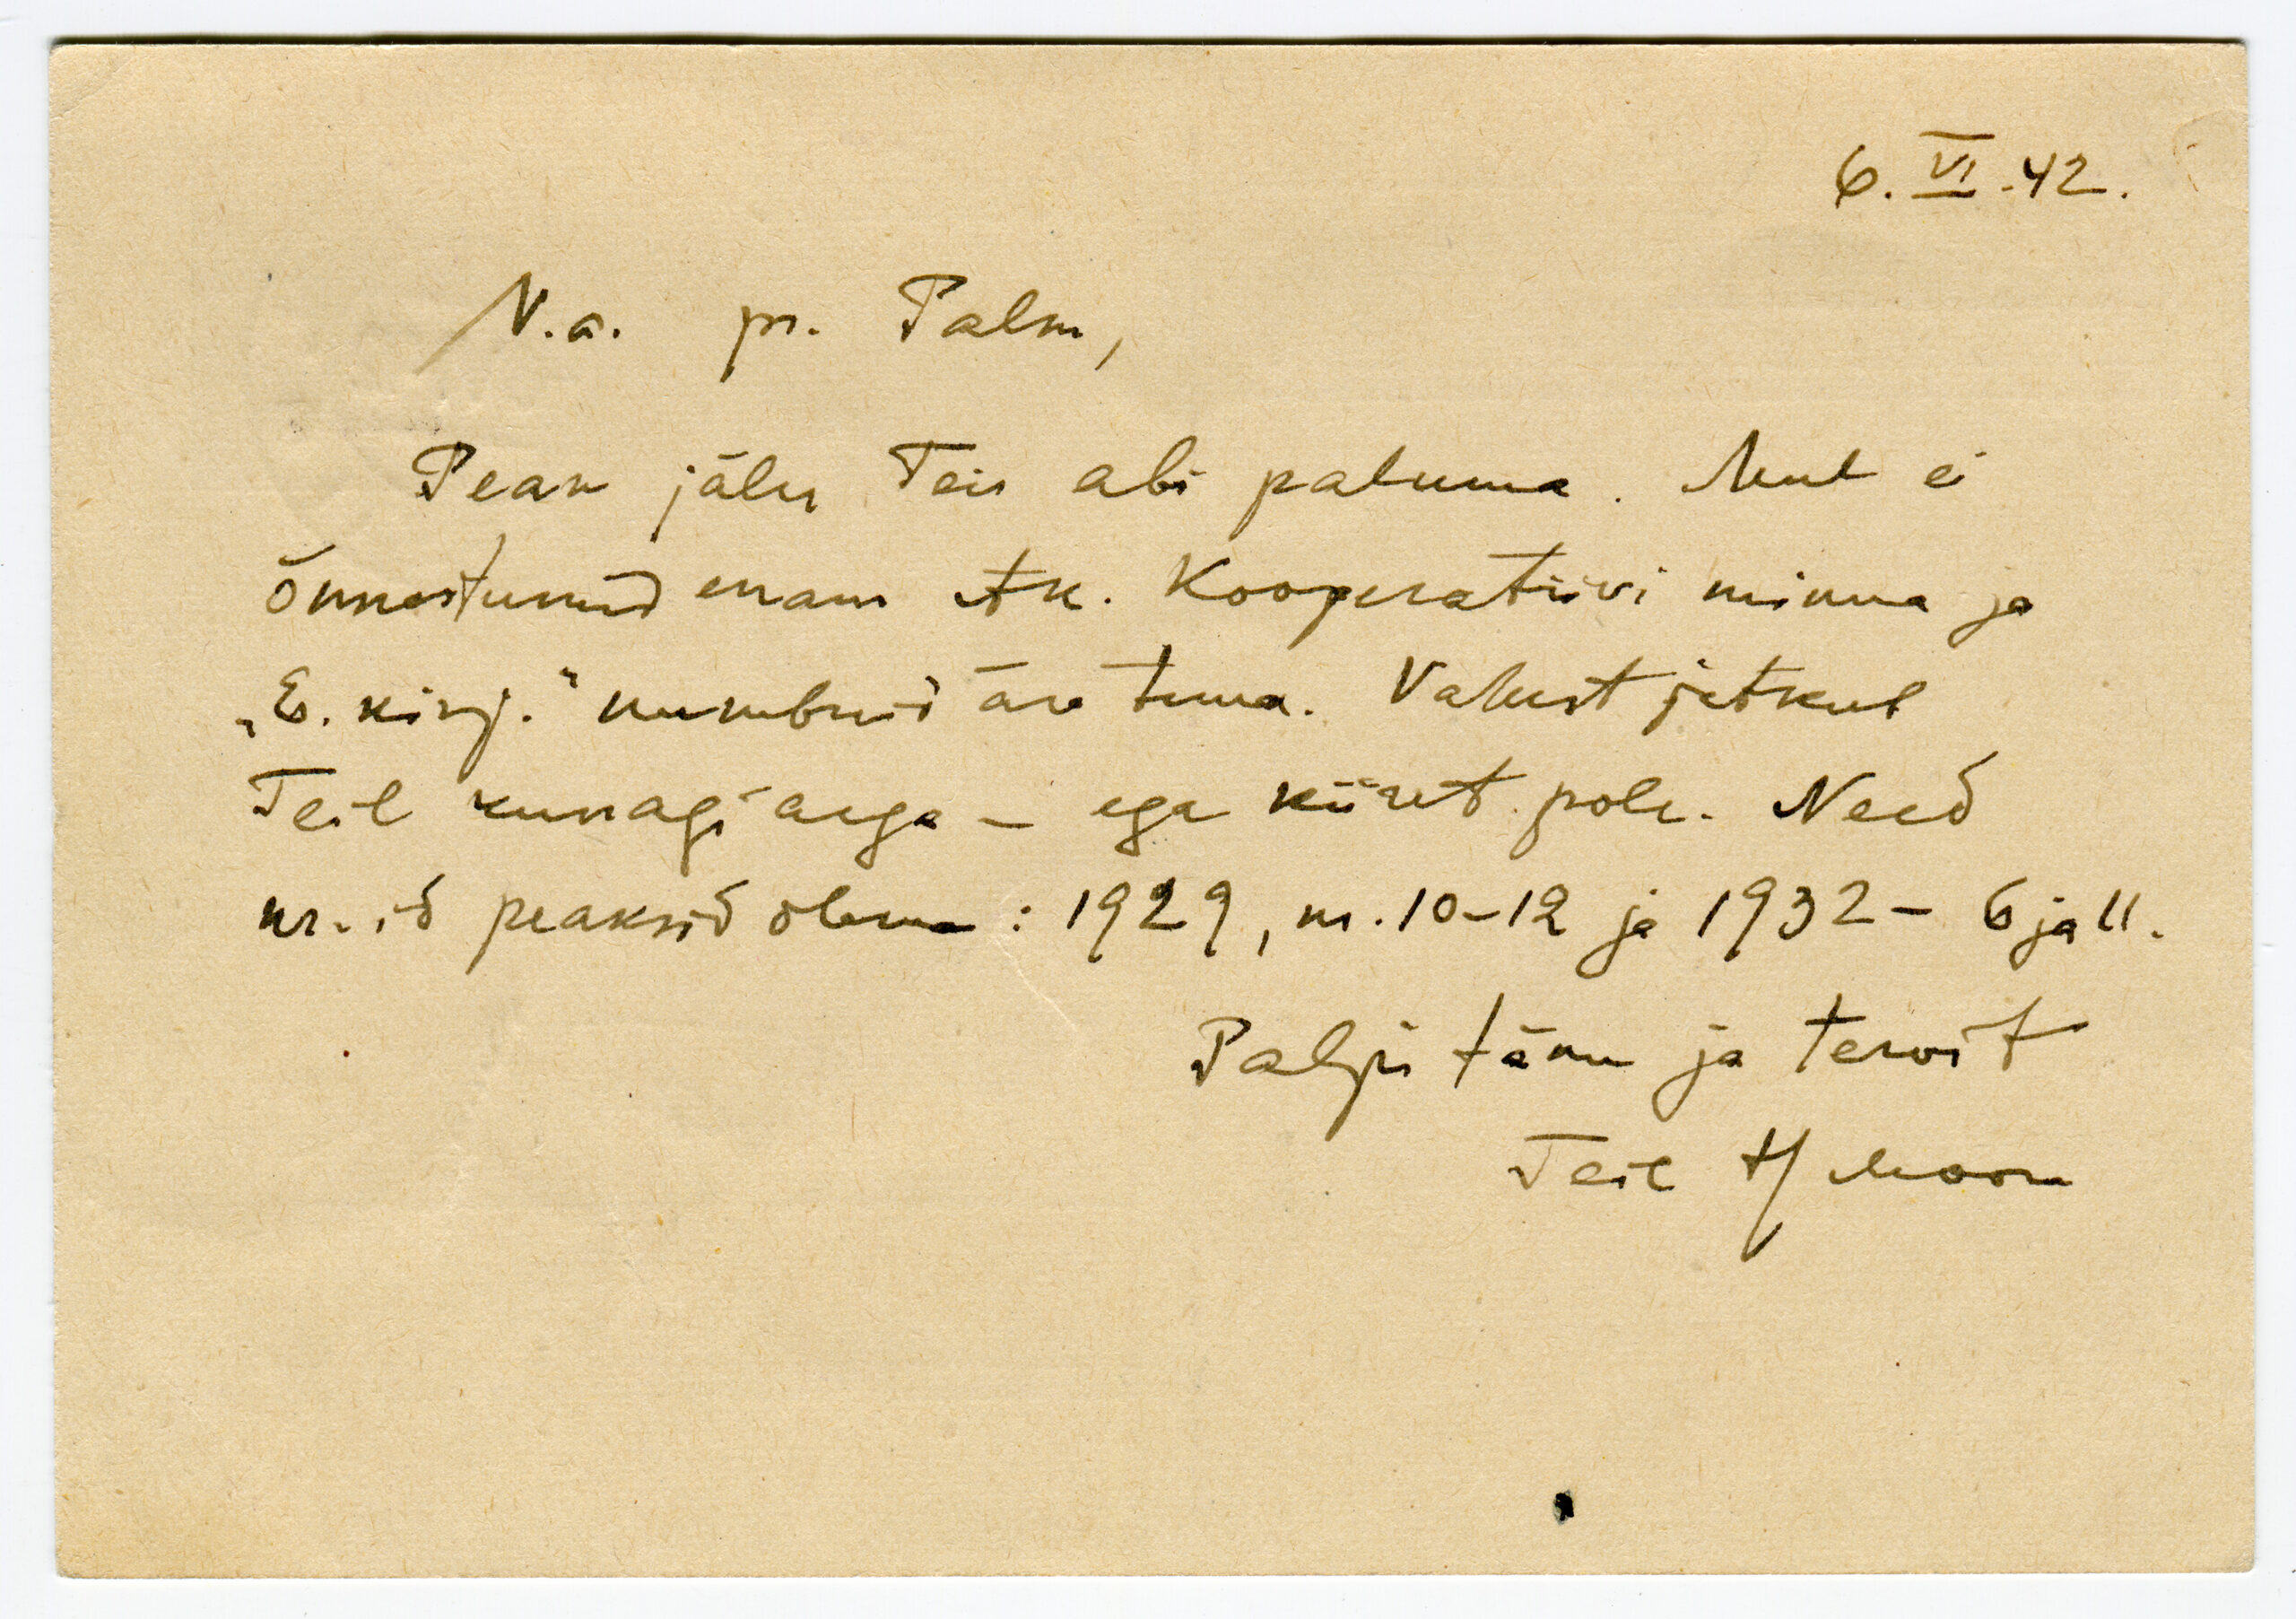 6. VI. 42.
N. a. pr. Palm,
Pean jälle Teie abi paluma. Mul ei
õnnestunud enam Ak. Kooperatiivi minna ja
„E. kirj." numbrid ära tuua. Vahest jätkub
Teil kunagi aega – ega kiiret pole. Need
nr.-id peaksid olema: 1929, nr. 10–12 ja 1932 – 6 ja 11.
Palju tänu ja tervit
Teil H Moora